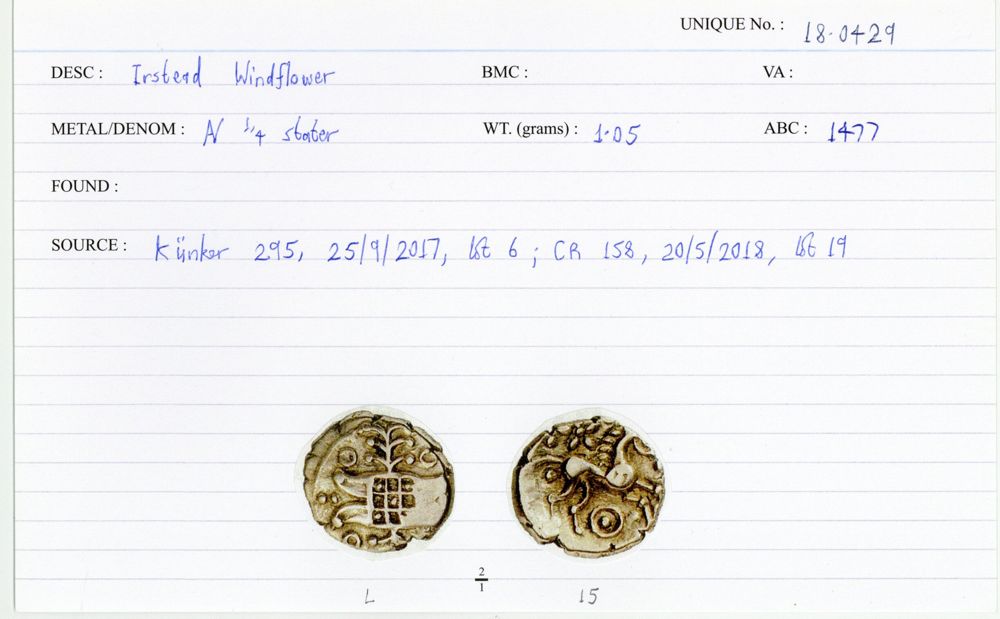 UNIQUE No. : 18.0429
DESC : Irstead Windflower BMC : VA :
METAL/DENOM : AV 1/4 stater WT. (grams) : 1.05 ABC : 1477
FOUND :
SOURCE : Künker 295, 25/9/2017, lot 6 ; CR 158, 20/5/2018, lot 19
2/1
L 15